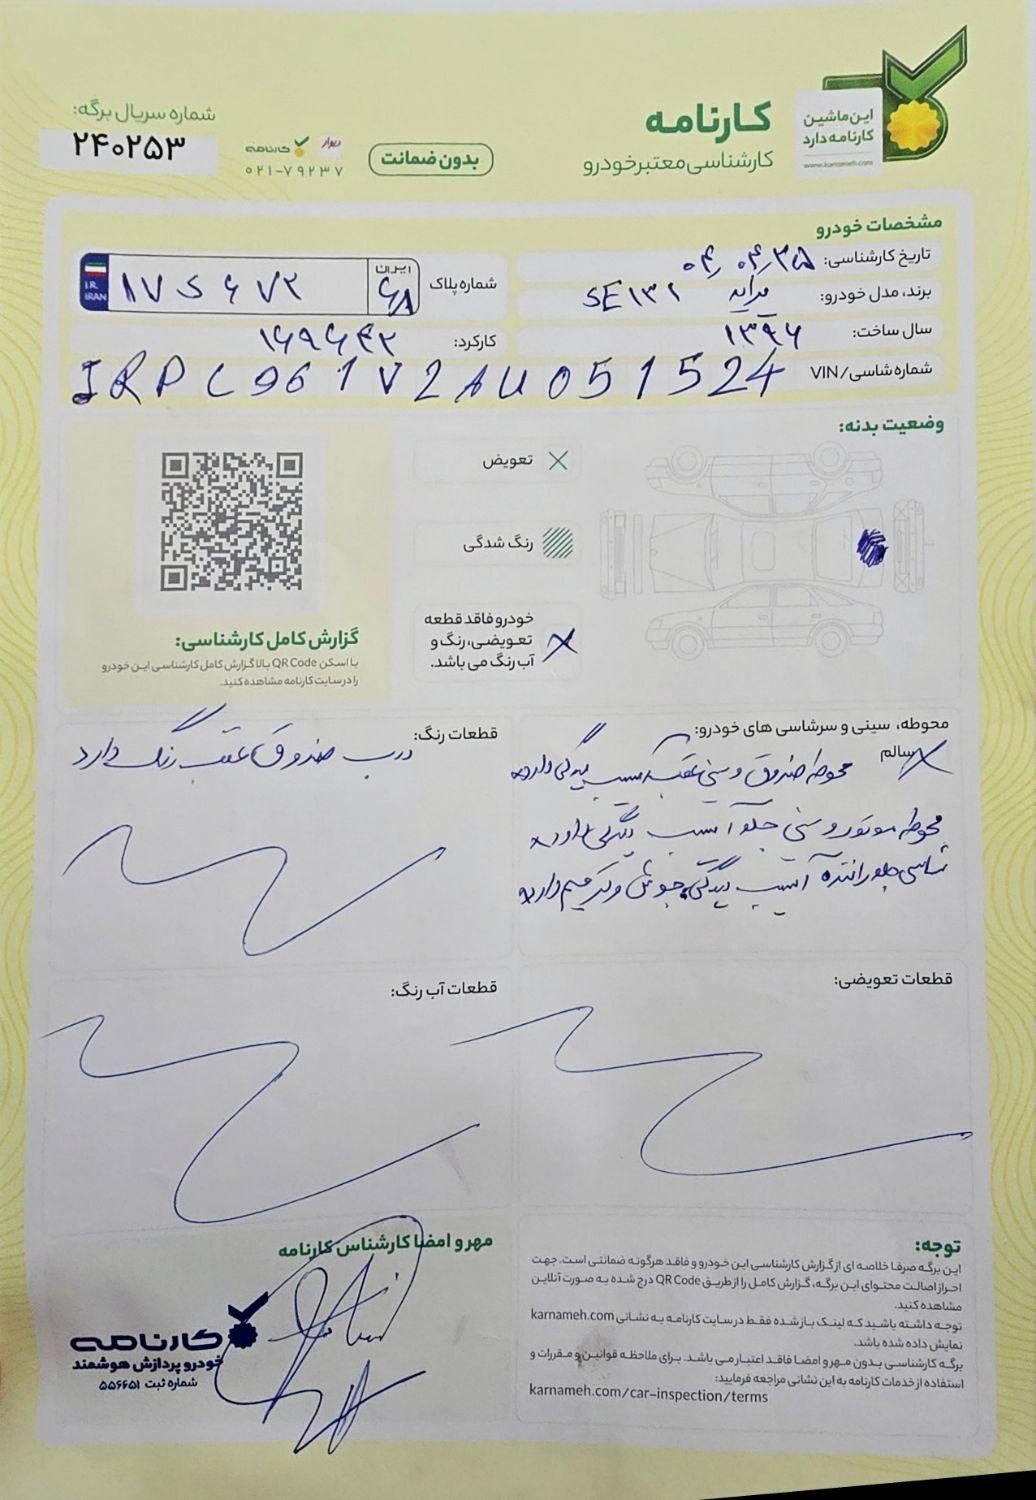 این ماشین
کارنامه دارد
www.karnameh.com
کارنامه
کارشناسی معتبر خودرو
بدون ضمانت
دیوار کارنامه
۰۲۱-۷۹۲۳۷
شماره سریال برگه:
۲۴۰۲۵۳
مشخصات خودرو
تاریخ کارشناسی: ۰۴٫۰۴٫۲۵
شماره پلاک
ایران
۶۸
۱۷ S ۶۷۲
I.R.
IRAN
برند، مدل خودرو: پراید SE۱۳۱
سال ساخت: ۱۳۹۶
کارکرد: ۱۶۹۶۴۲
شماره شاسی/ VIN IRPC961V2AU051524
وضعیت بدنه:
تعویض
رنگ شدگی
خودرو فاقد قطعه
تعویضی، رنگ و
آب رنگ می باشد.
گزارش کامل کارشناسی:
با اسکن QR Code بالا گزارش کامل کارشناسی این خودرو
را در سایت کارنامه مشاهده کنید.
محوطه، سینی و سرشاسی های خودرو:
سالم
محوطه صندوق و سینی عقب آسیب دیدگی دارد
محوطه موتور و سینی جلو آسیب دیدگی دارد
شاسی جلو راننده آسیب دیدگی، جوش و ترمیم دارد
قطعات رنگ:
درب صندوق عقب رنگ دارد
قطعات تعویضی:
قطعات آب رنگ:
توجه:
این برگه صرفا خلاصه ای از گزارش کارشناسی این خودرو و فاقد هرگونه ضمانتی است. جهت
احراز اصالت محتوای این برگه، گزارش کامل را از طریق QR Code درج شده به صورت آنلاین
مشاهده کنید.
توجه داشته باشید که لینک باز شده فقط در سایت کارنامه به نشانی karnameh.com
نمایش داده شده باشد.
برگه کارشناسی بدون مهر و امضا فاقد اعتبار می باشد. برای ملاحظه قوانین و مقررات و
استفاده از خدمات کارنامه به این نشانی مراجعه فرمایید:
karnameh.com/car-inspection/terms
مهر و امضا کارشناس کارنامه
کارنامه
خودرو پردازش هوشمند
شماره ثبت ۵۵۶۶۵۱